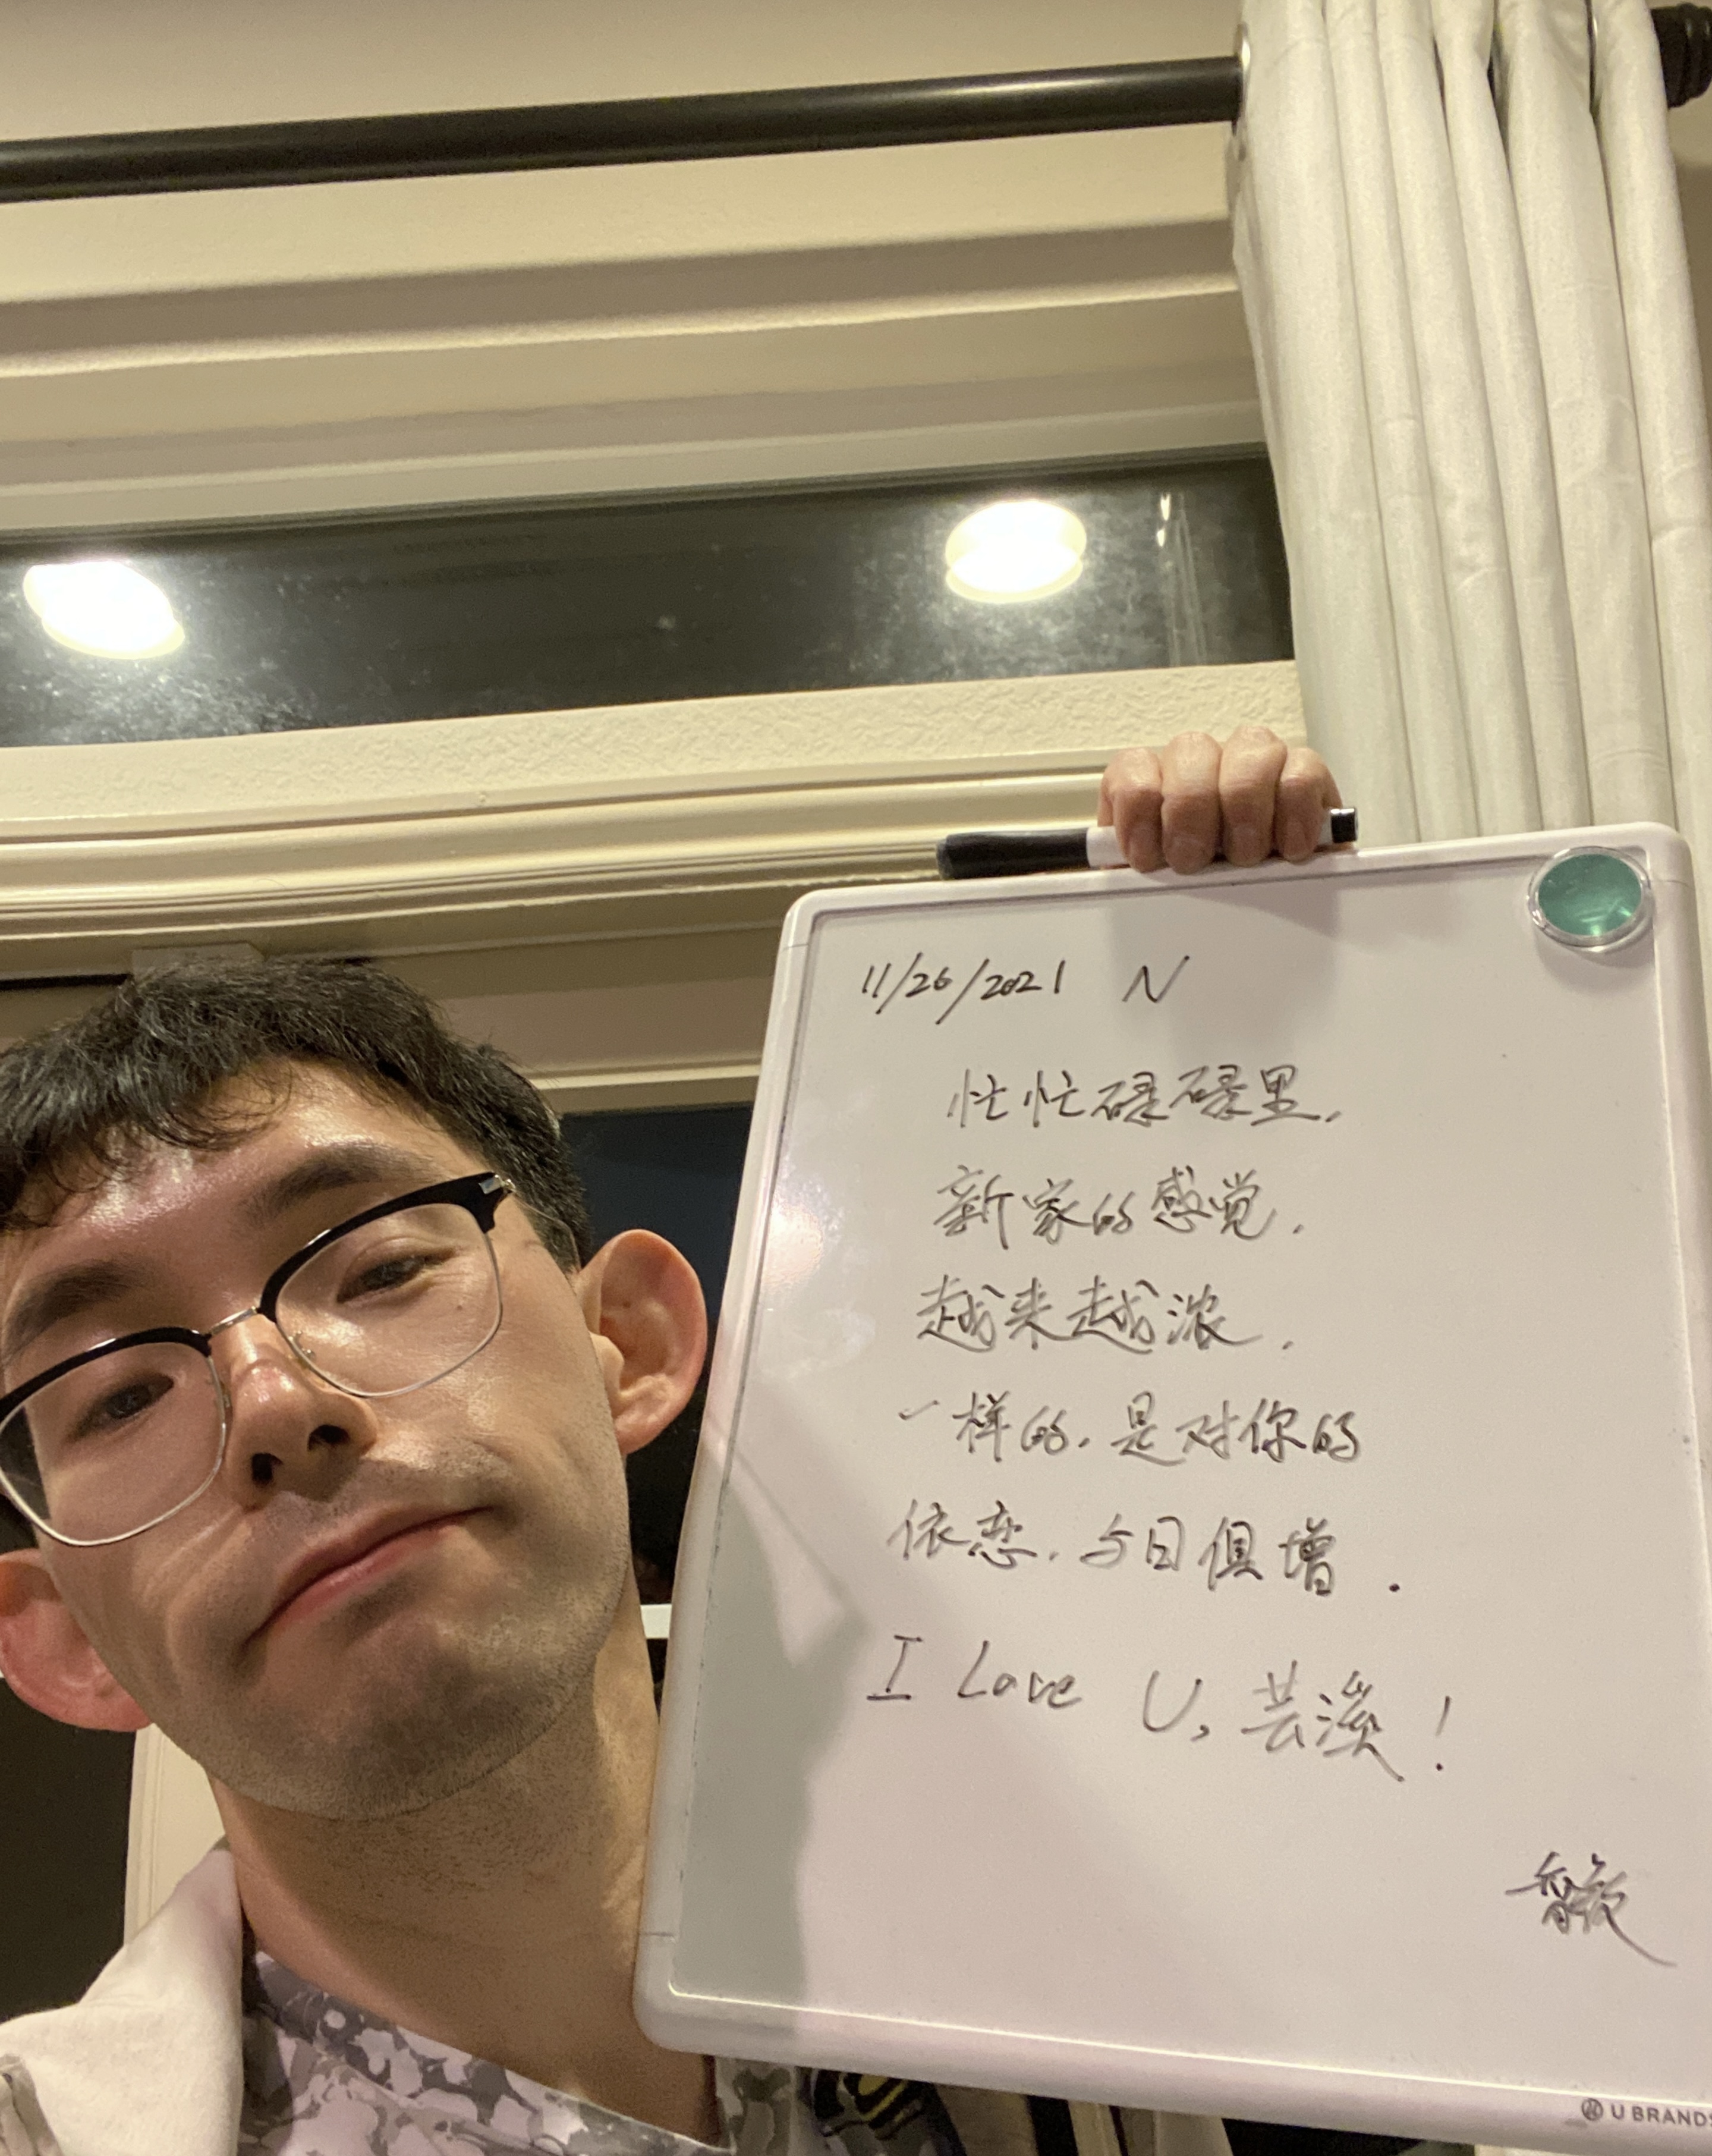 11/26/2021 N
忙忙碌碌里，
新家的感觉，
越来越浓，
一样的，是对你的
依恋，与日俱增．
I Love U, 芸溪！
U BRANDS